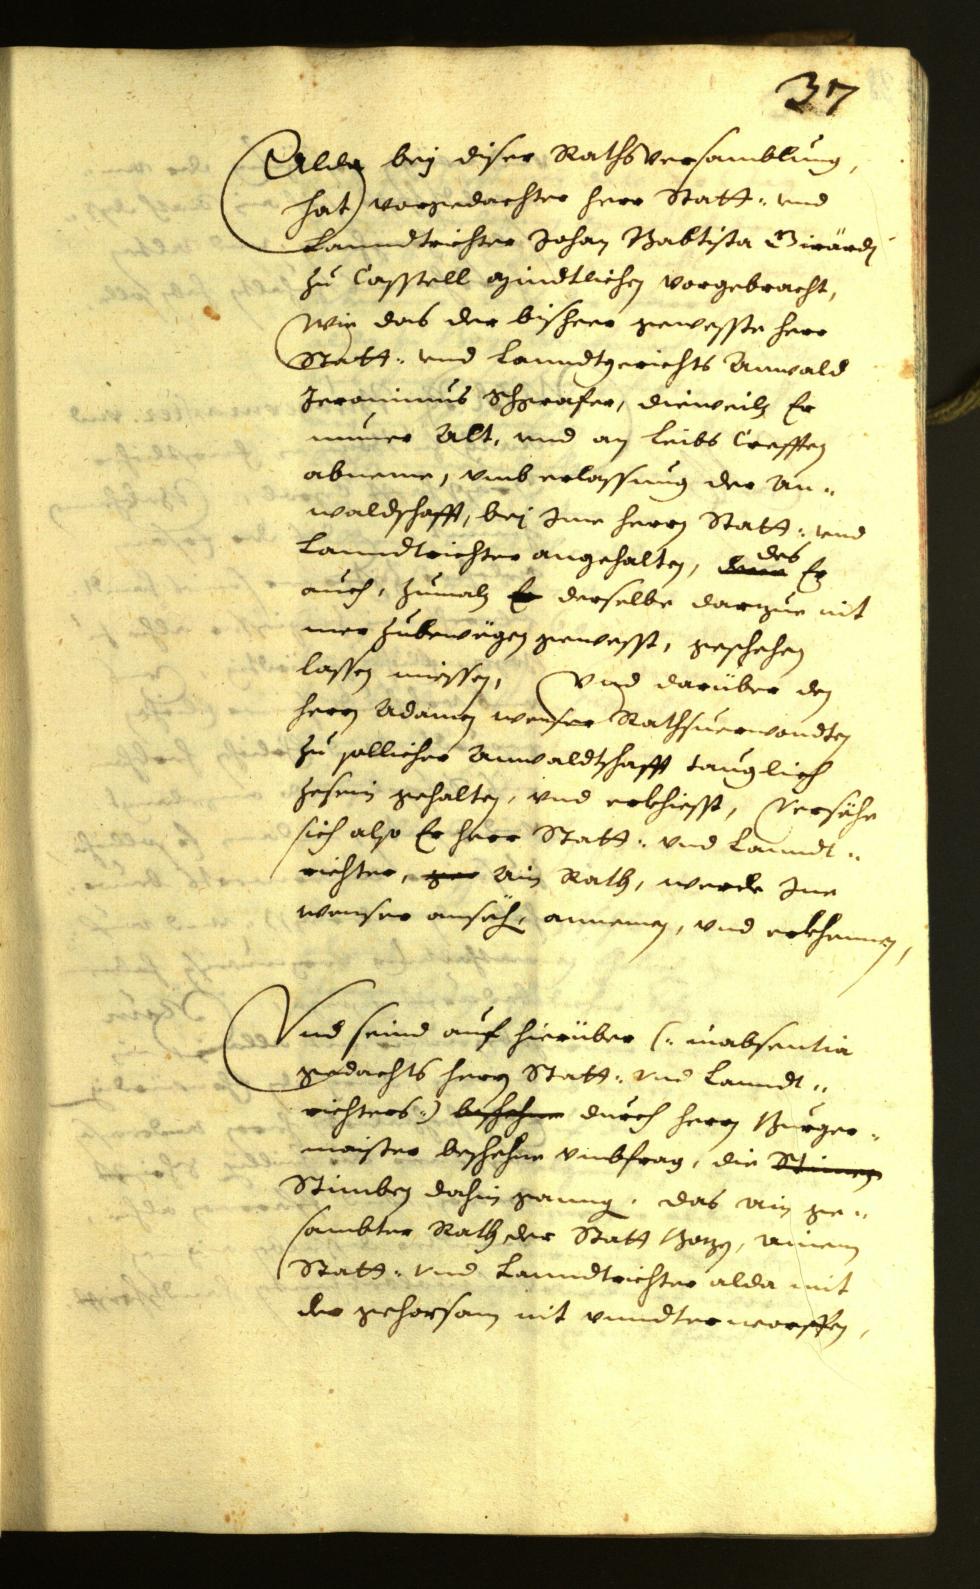 37
Alda bey diser Raths versamblung,
hat vorgedachter herr Statt: und
Lanndtrichter Johan Babtista Girardj
zu Casstell mindtlichen vorgebracht,
Wie das der bisheer gewesste herr
Statt: und Lanndtgerichts Anwald
Jeronimus Schgrafer, dieweilen Er
numer Alt, und an leibs Crefften
abneme, umb erlassung der An„
waldschafft, bej Ime herrn Statt: und
Lanndtrichter angehalten, des Er
auch, zumaln Er derselbe darzue nit
mer zubewögen gewesst, geschehen
lassen miessen, Und darüber den
herrn Adamen Wenser Rathsverwondten
zu sollicher Anwaldtschafft tauglich
zesein gehalten, und erkhiesst, Versähe
sich also Er herr Statt: und Lanndt„
richter, ain Rath, werde Ine
Wenser ansech, annemen, und erkhennen,
Und seind auf hierüber (: inabsentia
gedachts herrn Statt: und Lanndt„
richters:) beschehne durch herrn Burger„
maister beschehne Umbfrag, die Stimen
Stimben dahin ganng, das ain ge„
sambter Rath der Statt Bozen, ainem
Statt: und Lanndtrichter alda mit
der gehorsam nit unndterworffen,